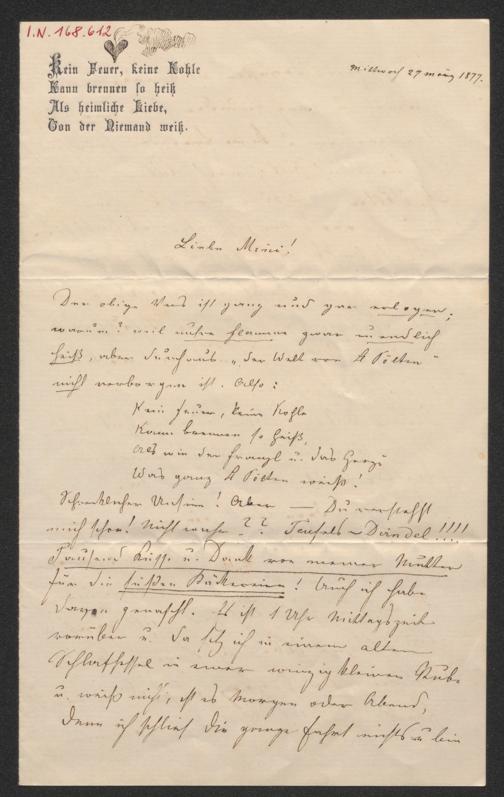 I.N. 168.612
Kein Feuer, keine Kohle
Kann brennen so heiß
Als heimliche Liebe,
Von der Niemand weiß.
Mittwoch 27 März 1877.
Liebe Mimi!
Der obige Vers ist ganz und gar erlogen;
warum? weil unsre Flamme zwar unendlich
heiß, aber durchaus „der Welt von St Pölten"
nicht verborgen ist. Also:
Kein Feuer, keine Kohle
Kann brennen so heiß,
Als wie der Franzl u. das
Was ganz St Pölten weiß!
Schrecklicher Unsinn! Aber — Du verstehst
mich schon! Nicht wahr?? Teufels-Dirndel!!!!
Tausend Küsse u. Dank von meiner Mutter
für die süßen Bäckereien! Auch ich habe
davon genascht. Es ist 1 Uhr Mittagszeit
vorüber u. da sitz ich in einem alten
Schlafsessel in einer winzig kleinen Stube
u. weiß nicht, ist es Morgen oder Abend,
denn ich schlief die ganze Fahrt nichts u. bin